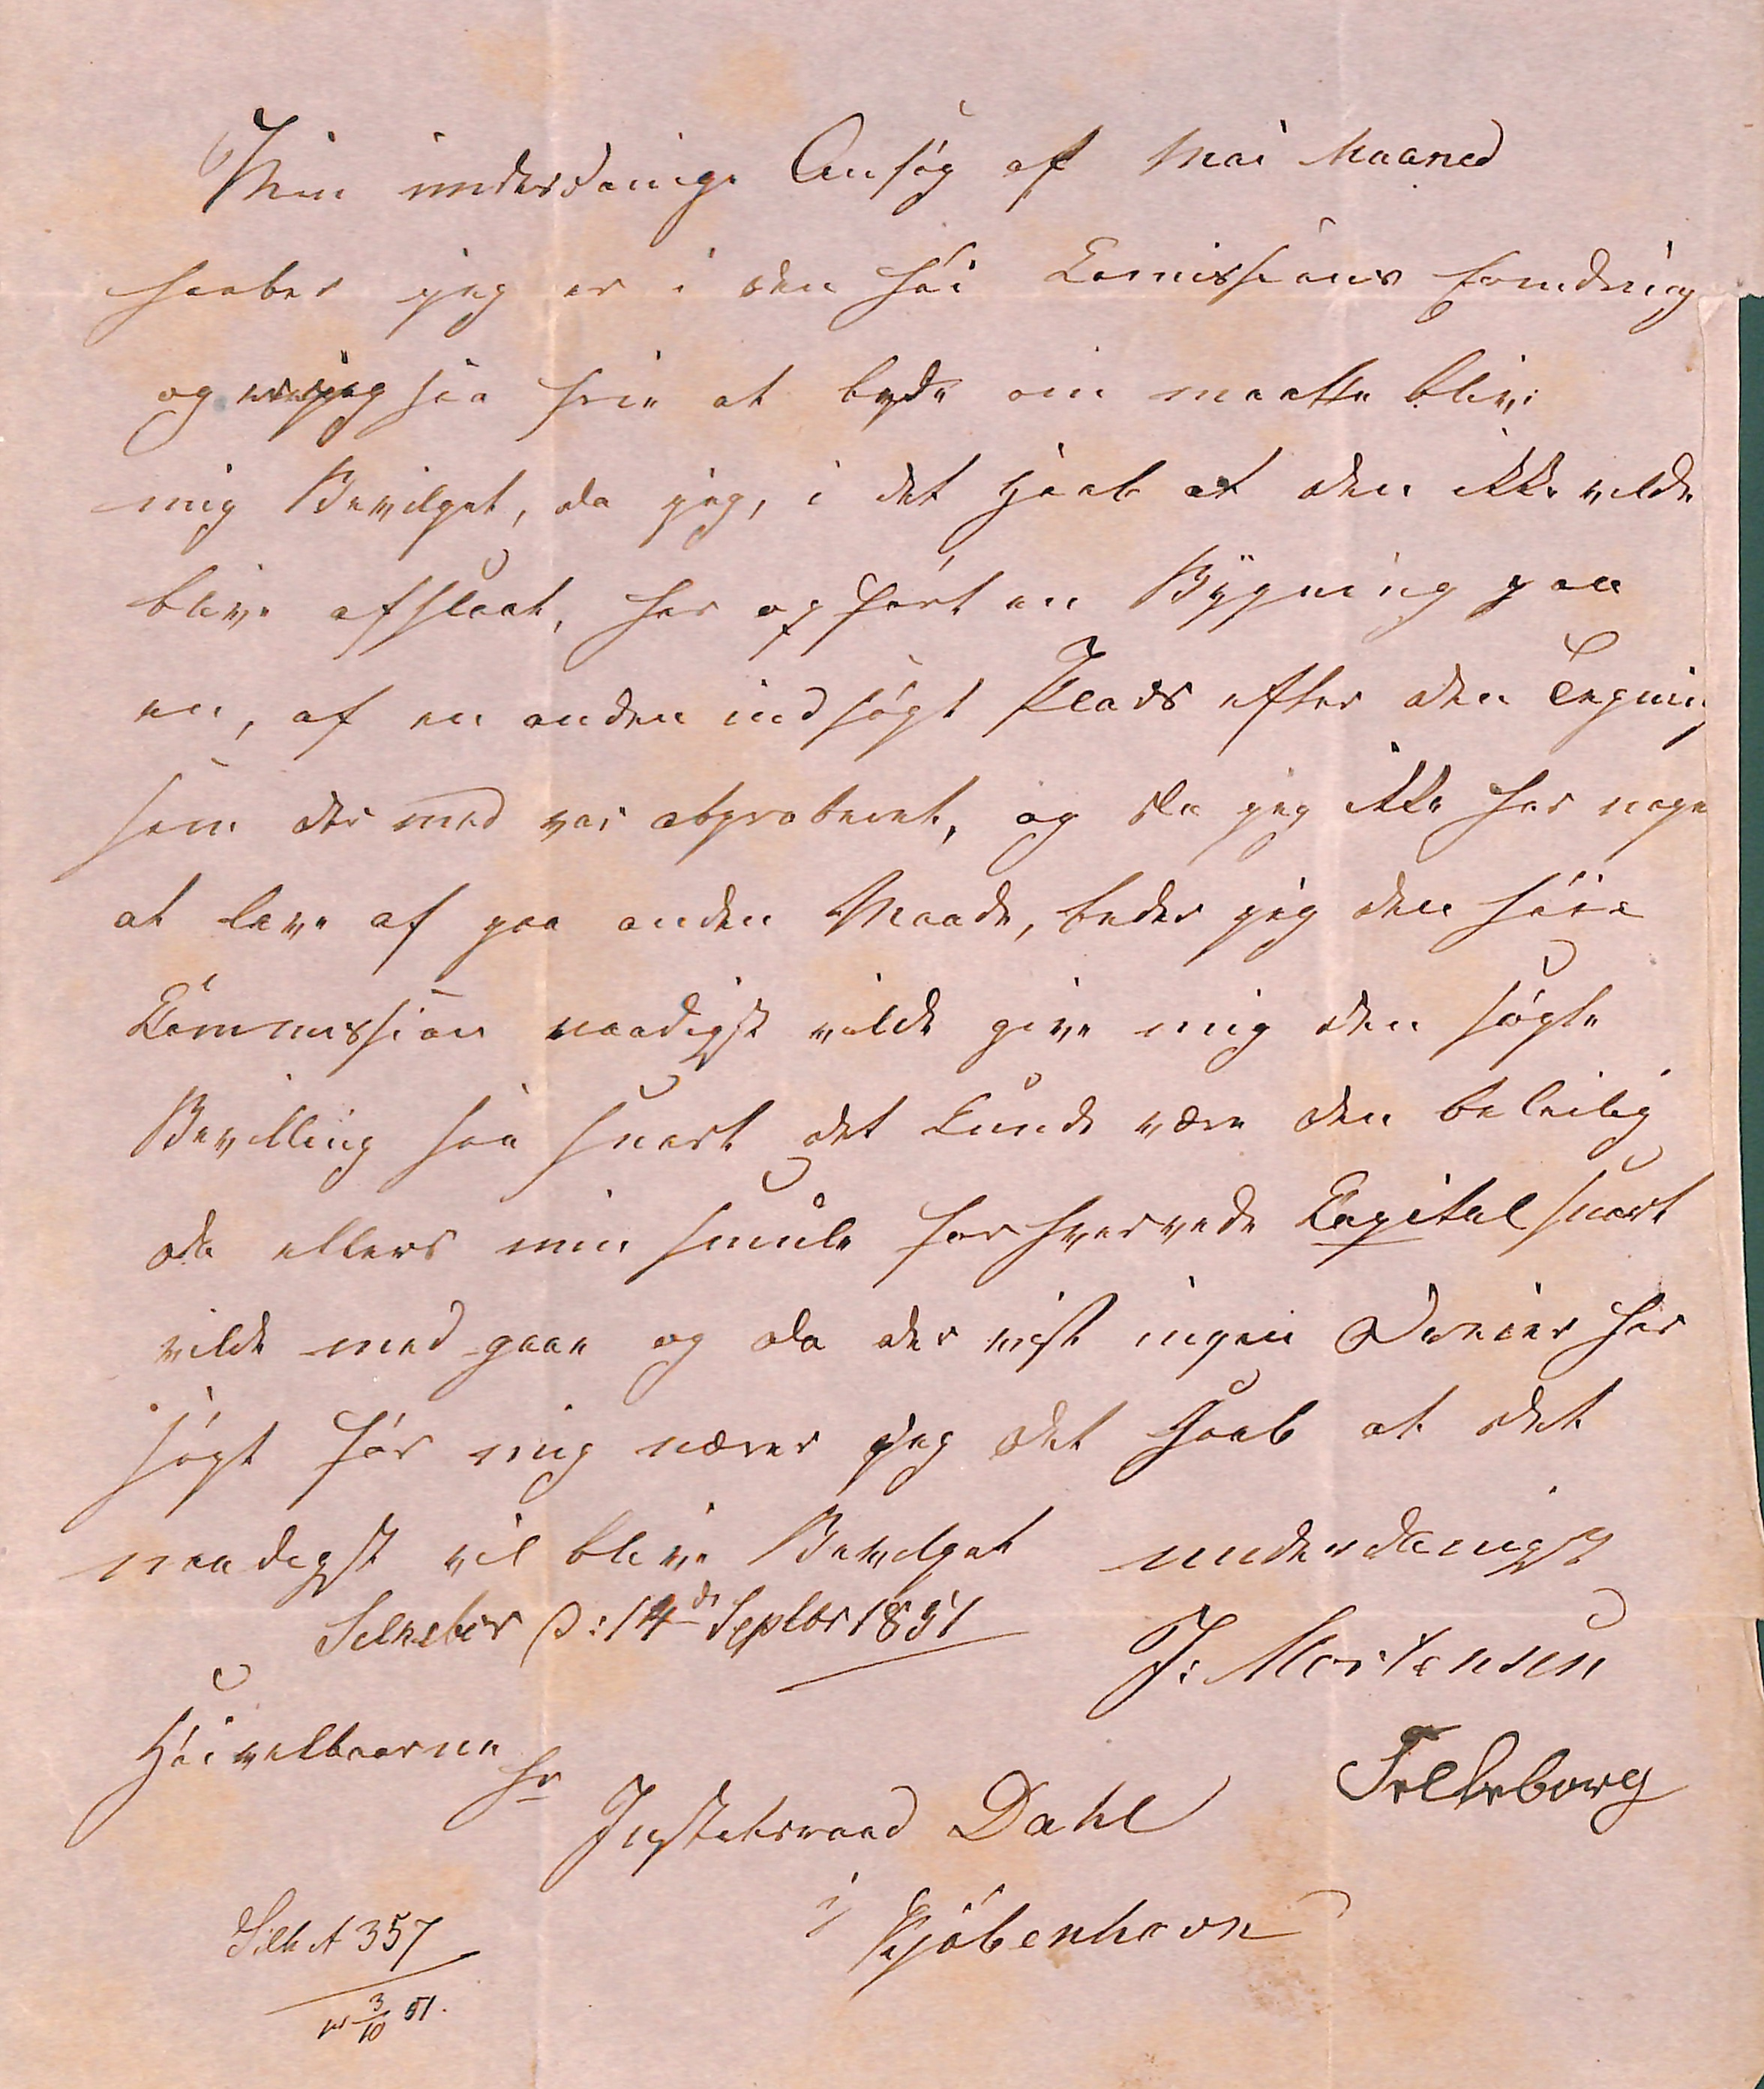 Min underdanige Ansøg af Mai Maaned
haaber jeg er i den høi Comissions Erindring
og jeg saa frie at bede om maatte blive
mig Bevilget, da jeg, i det Haab at den ikke vilde
blive afslaaet, har opført en Bygning paa
en, af en anden indsøgt Plads efter den Tegning
som der med var abproberet, og da jeg ikke har noget
at leve af paa anden Maade, beder jeg den høie
Commission naadigst vilde give mig den søgte
Bevilling saa snart det kunde være den beleilig
da ellers min smule forhvervede Capital snart
vilde med gaae og da der vist ingen har
søgt før mig nærer jeg det Haab at det
naadigst vil blive Bevilget underdanigst
Silkeborg D: 14de Septbr 1851
J: Mortensen
Høivelbaarne
Hr Justitsraad Dahl
Silkeborg
i Kjöbenhavn
Silk A 357
pr 3/10 51.